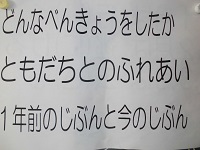 どんなべんきょうをしたか
ともだちとのふれあい
1年前のじぶんと今のじぶん